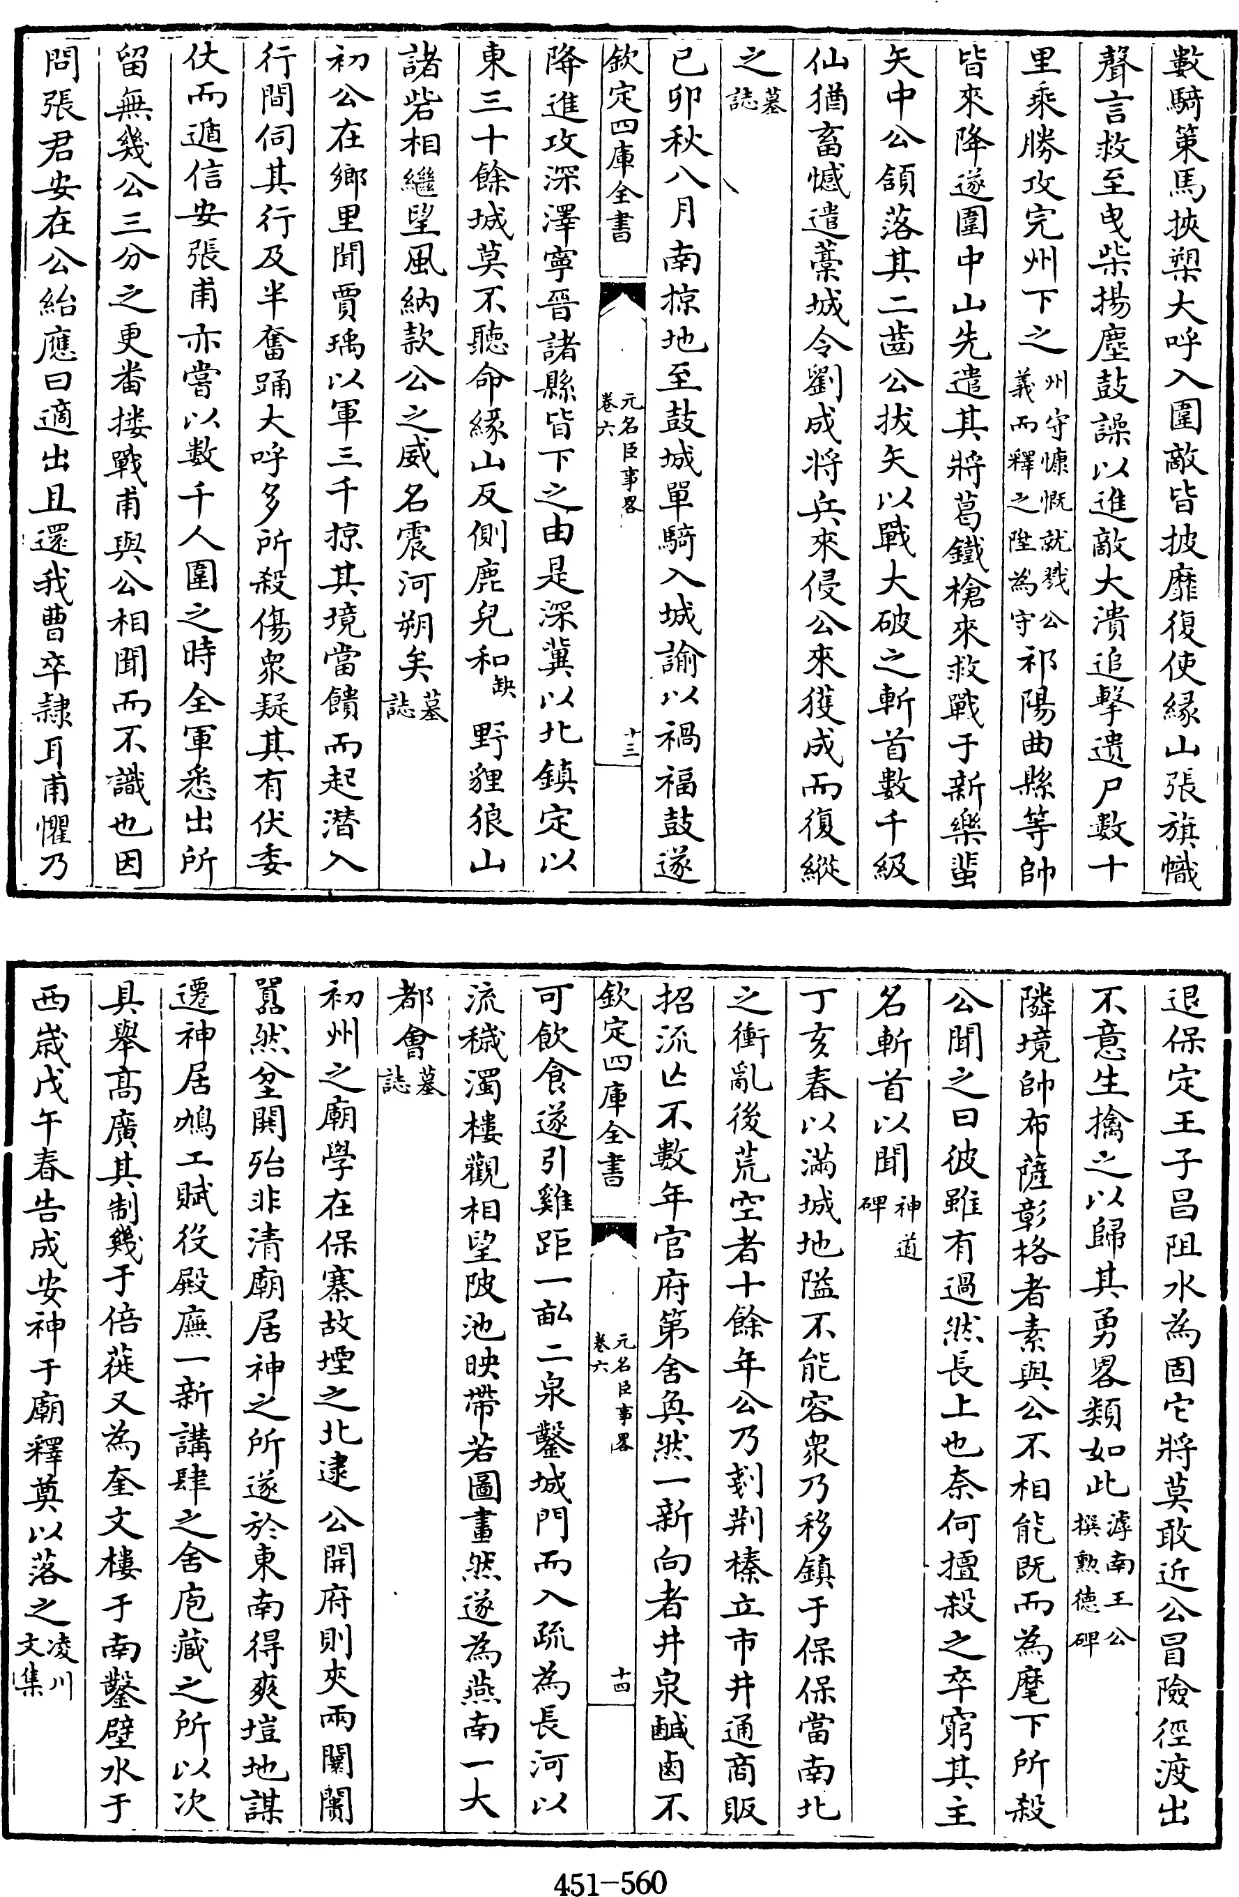 數騎策馬挾槊大呼入圍敵皆披靡復使緣山張旗幟
聲言救至曳柴揚塵鼓譟以進敵大潰追擊遺尸數十
里乘勝攻完州下之州守慷慨就戮公義而釋之陞為守祁陽曲縣等帥
皆來降遂圍中山先遣其將葛鐵槍來救戰于新樂蜚
矢中公頷落其二齒公拔矢以戰大破之斬首數千級
仙猶畜憾遣藁城令劉成將兵來侵公來獲成而復縱
之墓誌
已卯秋八月南掠地至鼓城單騎入城諭以禍福鼓遂
欽定四庫全書
元名臣事畧
卷六
十三
降進攻深澤寧晉諸縣皆下之由是深冀以北鎮定以
東三十餘城莫不聽命緣山反側鹿兒和缺 野貍狼山
諸砦相繼望風納款公之威名震河朔矣墓誌
初公在鄉里聞賈瑀以軍三千掠其境當饋而起潛入
行間伺其行及半奮踊大呼多所殺傷衆疑其有伏委
仗而遁信安張甫亦嘗以數千人圍之時全軍悉出所
留無幾公三分之更畨摟戰甫與公相聞而不識也因
問張君安在公紿應曰適出且還我曹卒隸耳甫懼乃
退保定王子昌阻水為固它將莫敢近公冒險徑渡出
不意生擒之以歸其勇畧類如此滹南王公撰勲德碑
隣境帥布薩彰格者素與公不相能既而為麾下所殺
公聞之曰彼雖有過然長上也奈何擅殺之卒窮其主
名斬首以聞神道碑
丁亥春以滿城地隘不能容衆乃移鎮于保保當南北
之衝亂後荒空者十餘年公乃剗荆榛立市井通商販
招流亡不數年官府第舍奐然一新向者井泉鹹鹵不
欽定四庫全書
元名臣事畧
卷六
十四
可飲食遂引雞距一畝二泉鑿城門而入疏為長河以
流穢濁樓觀相望陂池映帶若圖畫然遂為燕南一大
都會墓誌
初州之廟學在保寨故堙之北逮公開府則夾兩闤闠
囂然坌閧殆非清廟居神之所遂於東南得爽塏地謀
遷神居鳩工賦役殿廡一新講肆之舍庖藏之所以次
具舉髙廣其制幾于倍蓰又為奎文樓于南鑿璧水于
西歲戊午春告成安神于廟釋奠以落之凌川文集
451-560